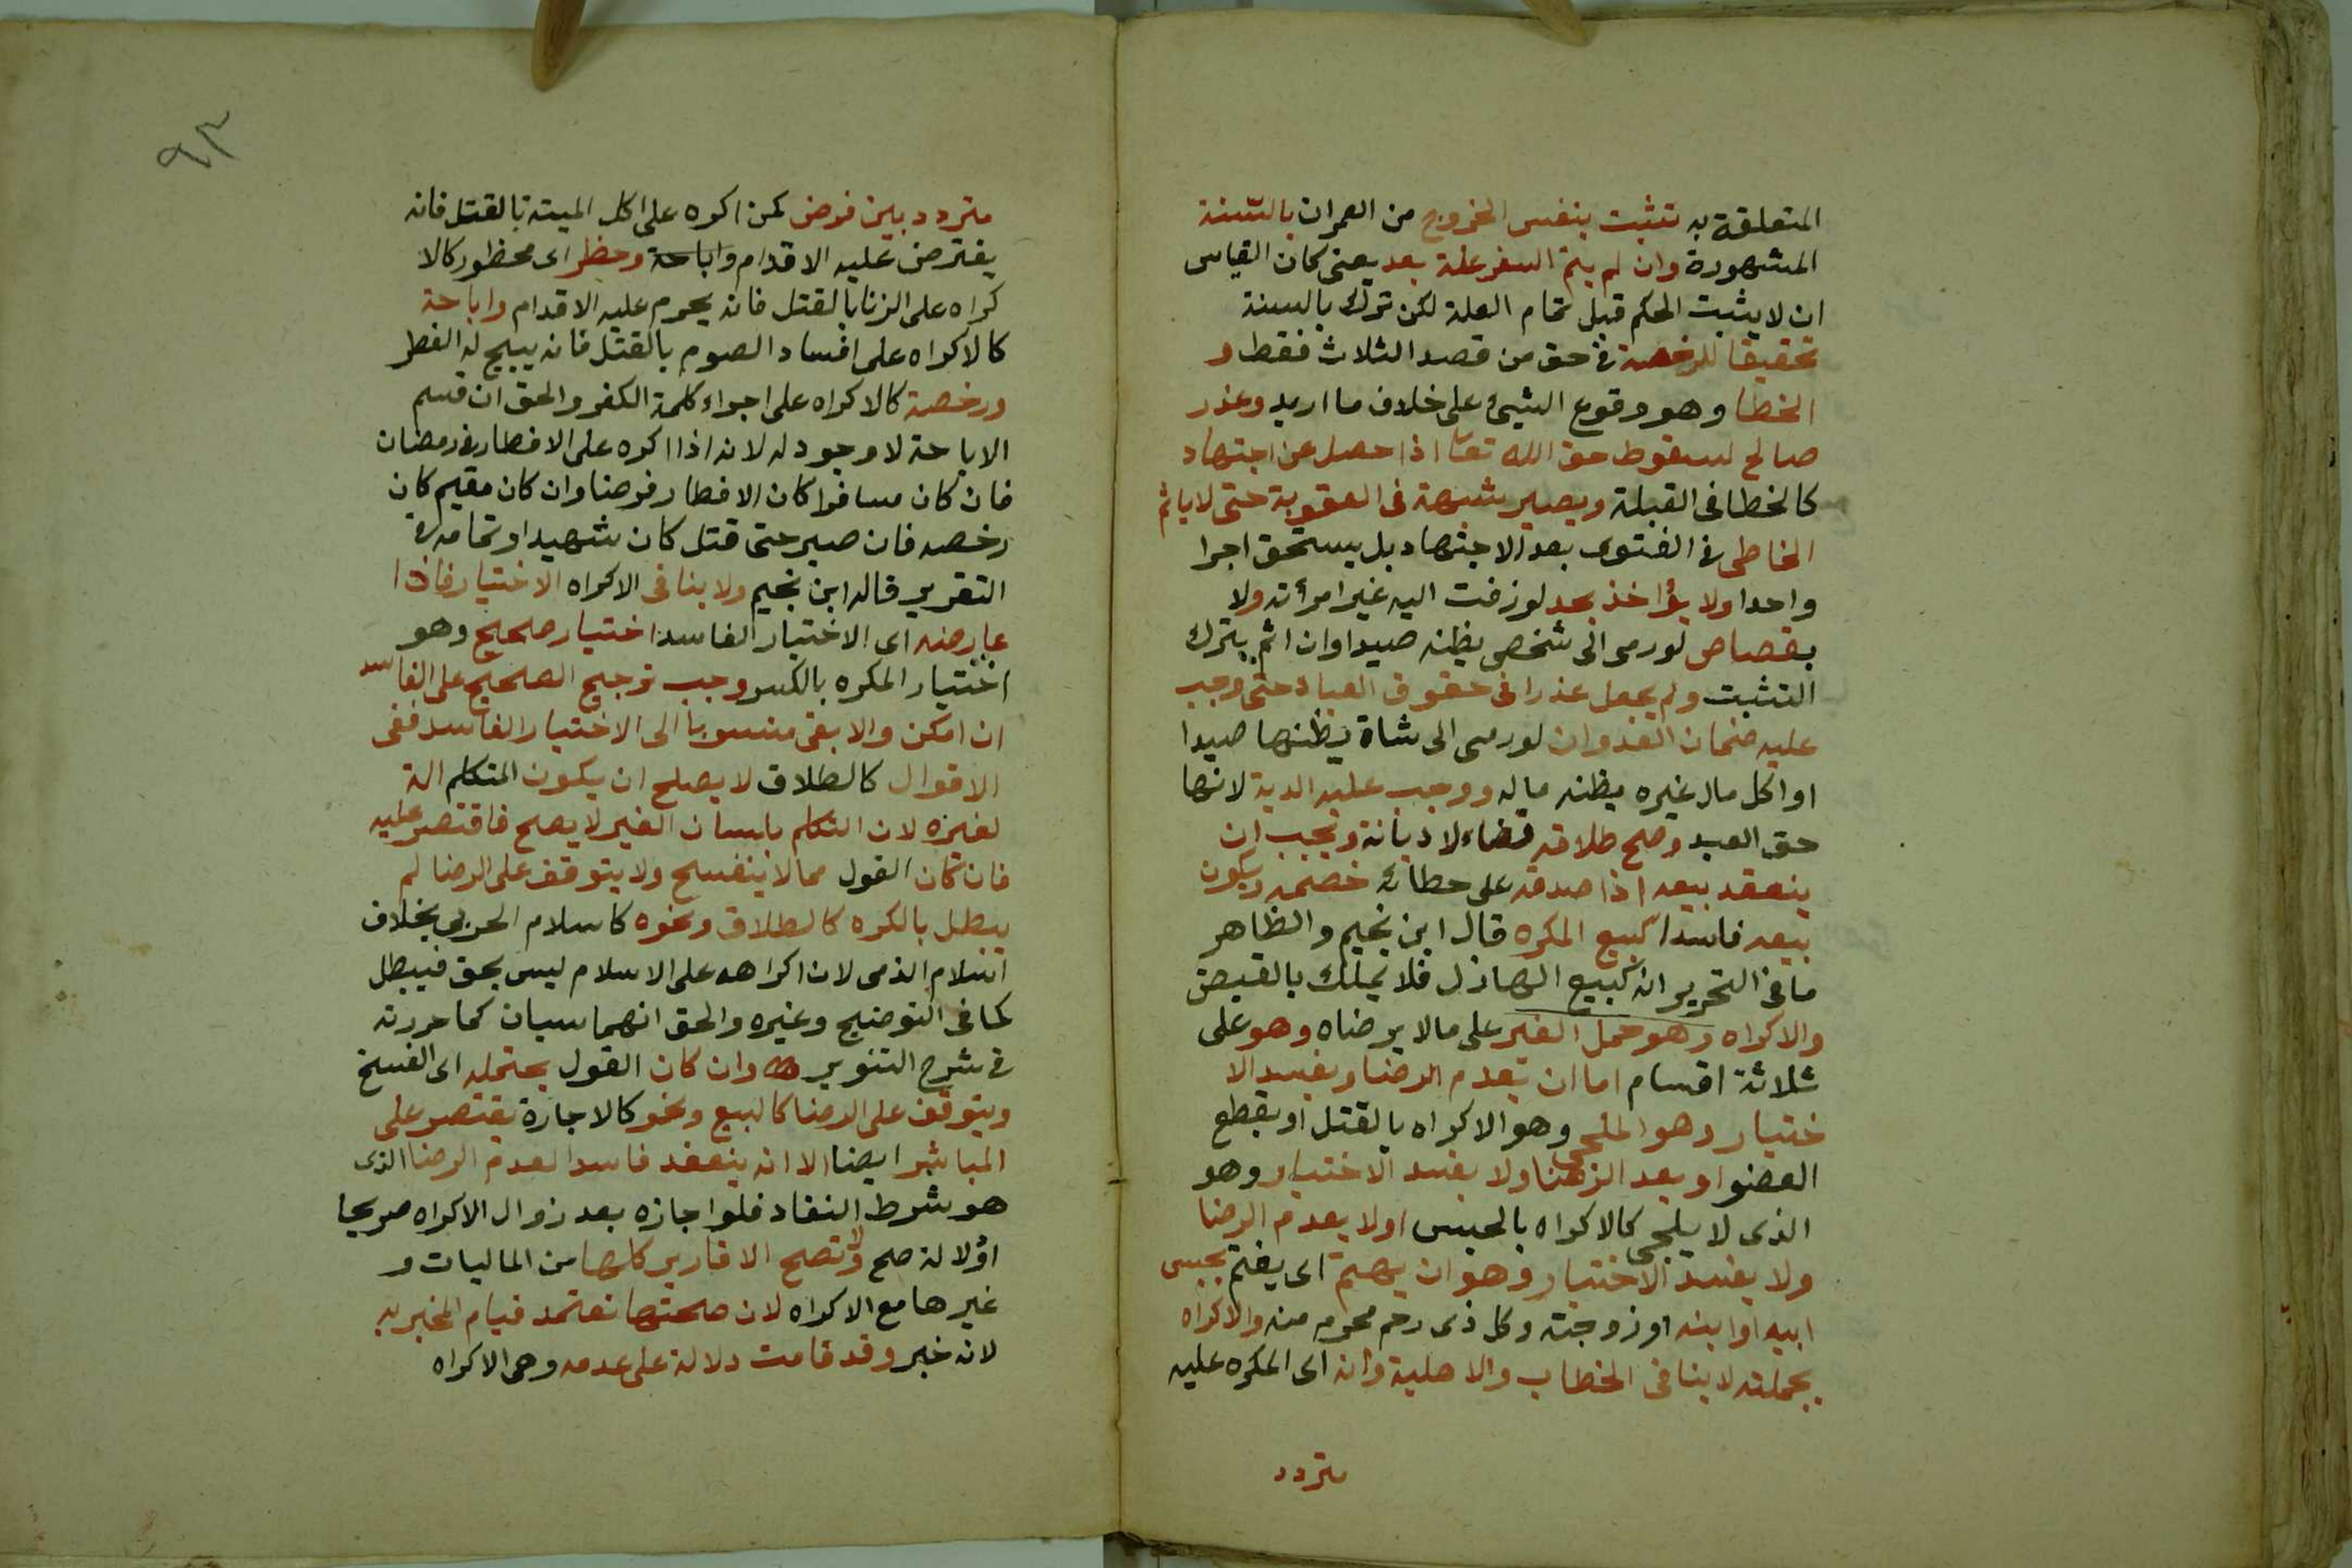 المتعلقة به تثبت بنفس الخروج من العمران بالسنة
المشهورة وان لم يتم السفر علة بعد يعنى كان القياس
ان لا يثبت الحكم قبل تمام العلة لكن ترك بالسنة
تحقيقا للرخصة فى حق من قصد الثلاث فقط و
الخطا وهو وقوع الشيئ على خلاف ما اريد وعذر
صالح لسقوط حق الله تعا اذا حصل عن اجتهاد
كالخطا فى القبلة ويصير شبهة فى العقوبة حتى لا ياثم
الخاطى فى الفتوى بعد الاجتهاد بل يستحق اجرا
واحدا ولا يؤاخذ بحد لو زفت اليه غير امرأته ولا
بقصاص لو رمى الى شخص يظنه صيدا وان اثم بترك
التثبت ولم يجعل عذرا فى حقوق العباد حتى وجب
عليه ضمان العدوان لو رمى الى شاة يظنها صيدا
او اكل مال غيره يظنه ماله ووجب عليه الدية لانها
حق العبد وصح طلاقه قضاء لا ديانة ويجب ان
ينعقد بيعه اذا صدقه على خطائه خصمه ويكون
بيعه فاسدا كبيع المكره قال ابن نجيم والظاهر
ما فى التحرير انه كبيع الهازل فلا يملك بالقبض
والاكراه وهو حمل الغير على ما لا يرضاه وهو على
ثلاثة اقسام اما ان يعدم الرضا ويفسد الا
ختيار وهو الملجى وهو الاكراه بالقتل او بقطع
العضو او يعدم الرضا ولا يفسد الاختيار وهو
الذى لا يلجى كالاكراه بالحبس اولا يعدم الرضا
ولا يفسد الاختيار وهو ان يهتم اى يغتم بحبس
ابيه او ابنه او زوجته وكل ذى رحم محرم منه والاكراه
بجملته لا ينافى الخطاب والاهلية وانه اى المكره عليه
متردد
٩٣
متردد بين فرض كمن اكره على اكل الميتة بالقتل فانه
يفترض عليه الاقدام واباحة وحظر اى محظور كالا
كراه على الزنا بالقتل فانه يحرم عليه الاقدام واباحة
كالاكراه على افساد الصوم بالقتل فانه يبيح له الفطر
ورخصة كالاكراه على اجراء كلمة الكفر والحق ان قسم
الاباحة لا وجود له لانه اذا اكره على الافطار فى رمضان
فان كان مسافرا كان الافطار فرضا وان كان مقيم كان
رخصه فان صبر حتى قتل كان شهيدا وتمامه فى
التقرير قاله ابن نجيم ولا ينافى الاكراه الاختيار فاذا
عارضه اى الاختيار الفاسد اختيار صحيح وهو
اختيار المكره بالكسر وجب ترجيح الصحيح على الفاسد
ان امكن والا بقى منسوبا الى الاختيار الفاسد ففى
الاقوال كالطلاق لا يصلح ان يكون المتكلم الة
لغيره لان التكلم بلسان الغير لا يصح فاقتصر عليه
فان كان القول مما لا ينفسخ ولا يتوقف على الرضا لم
يبطل بالكره كالطلاق ونحوه كاسلام الحربى بخلاف
اسلام الذمى لان اكراهه على الاسلام ليس بحق فيبطل
كما فى التوضيح وغيره والحق انهما سيان كما حررته
فى شرح التنوير وان كان القول يحتمله اى الفسخ
ويتوقف على الرضا كالبيع ونحو كالاجارة يقتصر على
المباشر ايضا الا انه ينعقد فاسدا لعدم الرضا الذى
هو شرط النفاذ فلو اجازه بعد زوال الاكراه صريحا
اؤلالة صح ولا تصح الاقارير كلها من الماليات و
غيرها مع الاكراه لان صحتها تعتمد قيام المخبر به
لانه خبر وقد قامت دلالة على عدمه وهى الاكراه